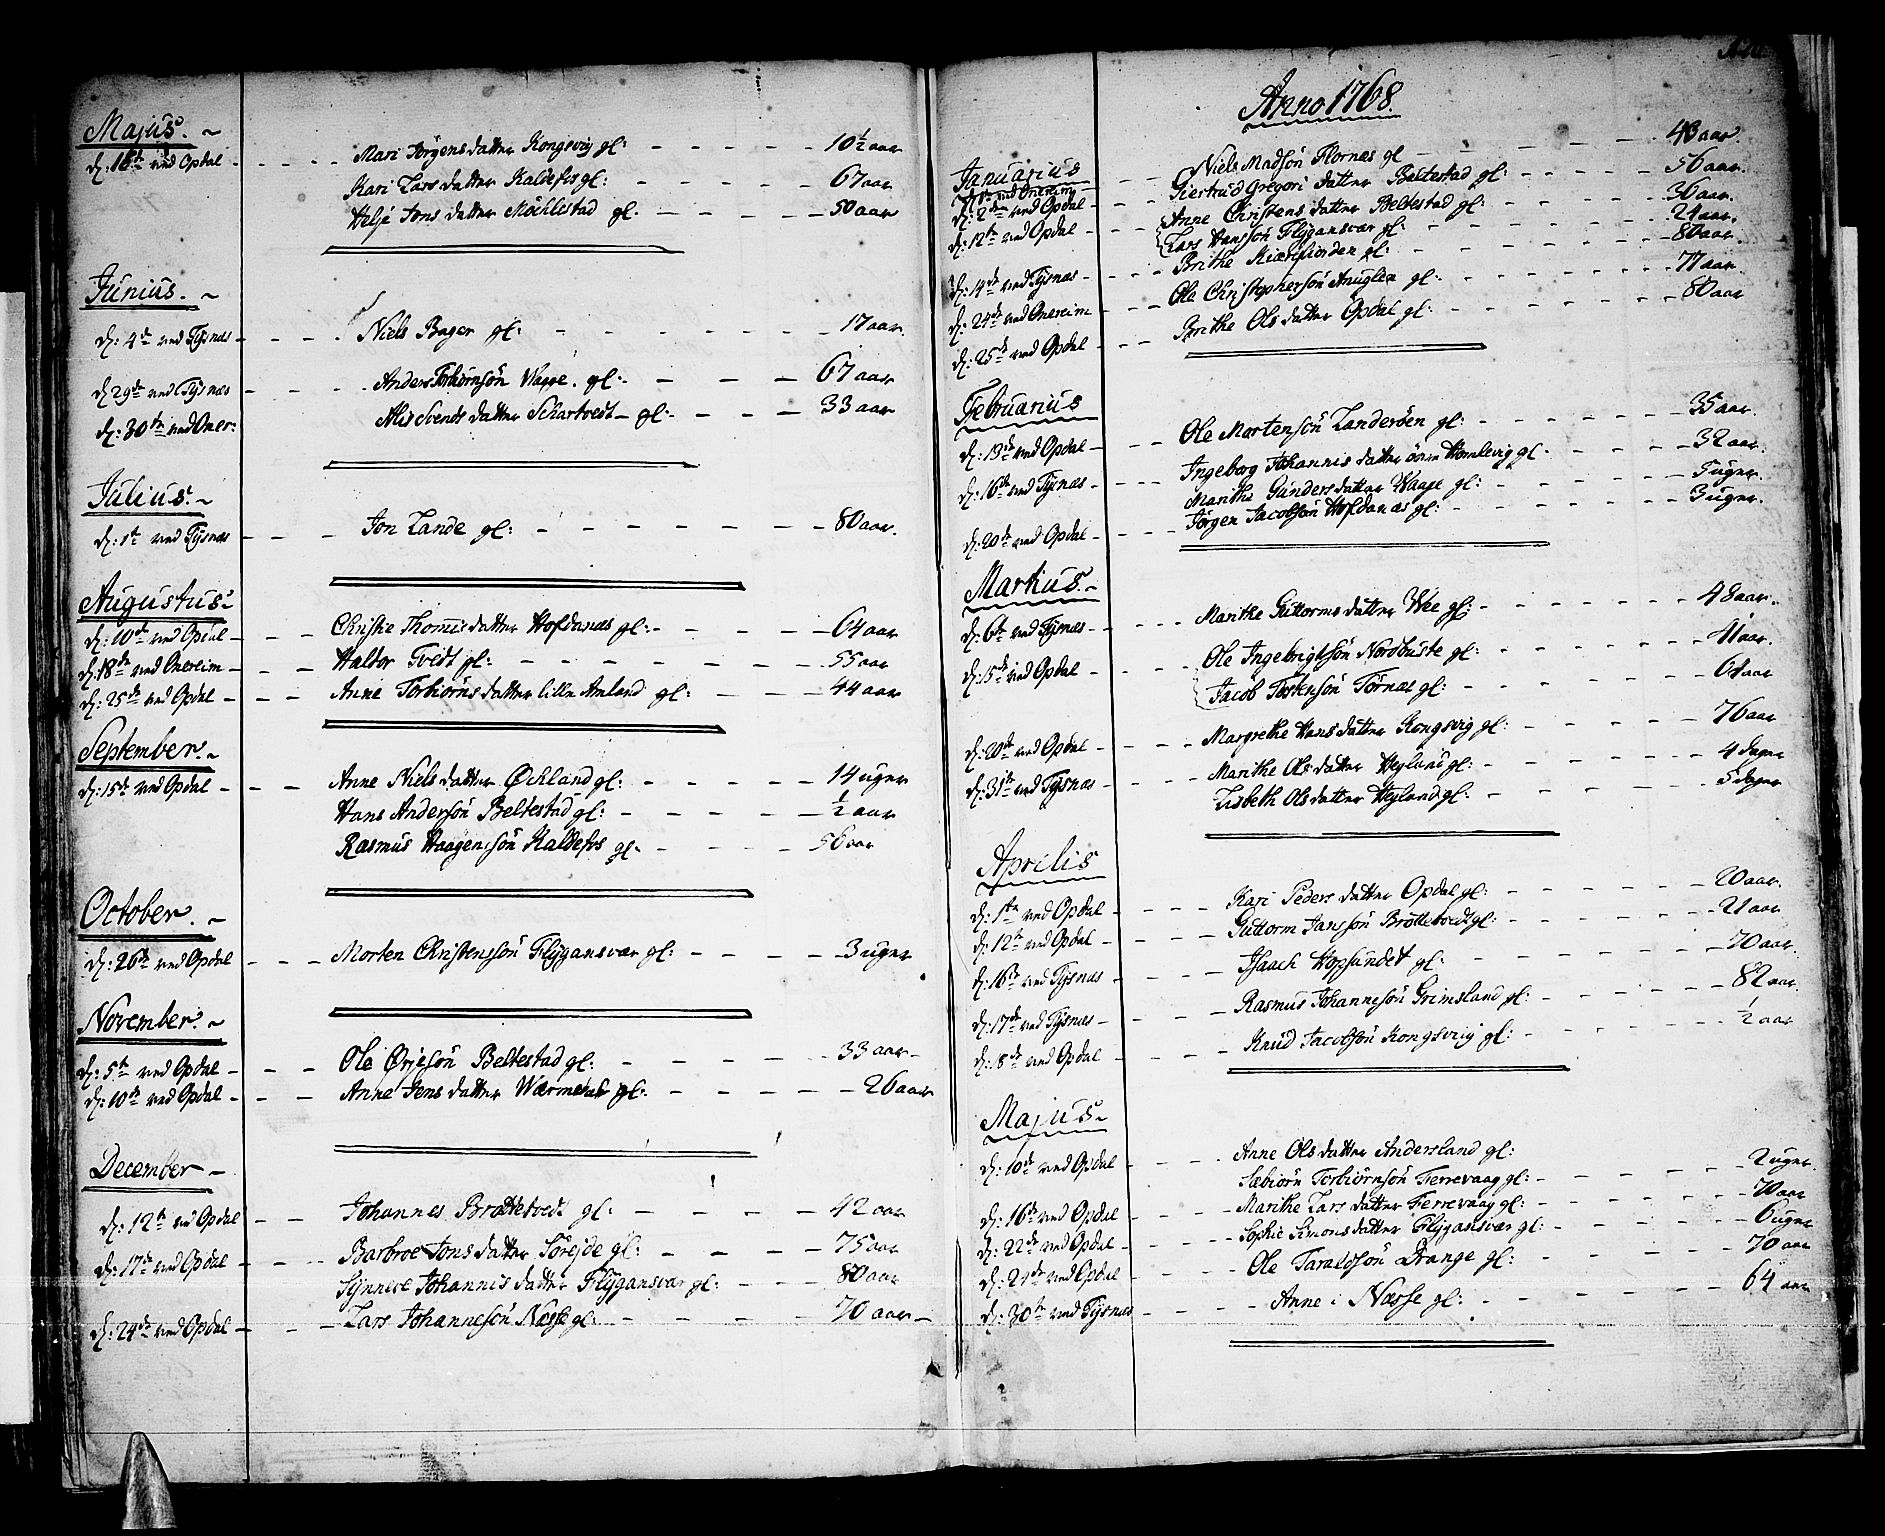 Majus.
d: 16de ved Opdal - Mari Jörgensdatter Kongsvig gl: - 10½ aar
Kari Larsdatter Kaldefos gl: - 67 aar
Helje Jonsdatter Möhlestad gl: - 50 aar
Junius.
d: 4de ved Tysnæs - Niels Bager gl: - 17 aar
d: 29de ved Tysnæs - Anders Torbiörnsön Wagge. gl: - 67 aar
d: 30te ved Oner: - Alis Svends datter Schartvedt gl: - 33 aar
Julius.
d: 1te ved Tysnæs - Jon Lande gl: - 80 aar
Augustus.
d: 10de ved Opdal - Christie Thomis datter Hofdanæs gl: - 64 aar
d: 18de ved Onereim - Haldor Tvedt gl: - 55 aar
d: 25de ved Opdal - Anne Torbiörns datter lille Amland gl: - 44 aar
September.
d: 15de ved Opdal - Anne Niels datter Öckland gl: - 14 uger
Hans Andersön Beltestad gl: - ½ aar
Rasmus Haagensön Kaldefos gl: - 56 aar
October.
d: 26de ved Opdal - Morten Christensön Flygansvær gl: - 3 uger
November.
d: 5te ved Opdal - Ole Örjesön Beltestad gl: - 33 aar
d: 10de ved Opdal - Anne Jens datter gl: - 26 aar
December
d: 12te ved Opdal - Johannes Brottetvedt gl: - 42 aar
d: 17de ved Opdal - Barbroe Jons datter Sörejde gl: - 75 aar
Synneve Johannis datter Flygansvær gl: - 80 aar
d: 24de ved Opdal - Lars Johannesön Næsse gl: - 70 aar
Anno 1768.
Januarius
ved Onereim - Niels Madsön Flornæs gl - 43 aar
d: 2den ved Opdal - Giertrud Gregori datter Beltestad gl: - 56 aar
d: 12te ved Opdal - Anne Christens datter Beltestad gl: - 30 aar
Lars Hansön Flygansvær gl: - 24 aar
d: 14de ved Tysnæs - Brithe Kiærefiorden gl: - 80 aar
d: 24de ved Onereim - Ole Christophersön Anuglen gl: - 77 aar
d: 25de ved Opdal - Brithe Ols datter Opdal gl: - 80 aar
Februarius
d: 13de ved Opdal - Ole Mortensön Landeröen gl: - 35 aar
d: 16de ved Tysnæs - Ingeborg Johannis datter övre Homlevig gl - 32 aar
Marithe Gunders datter Waage gl: - 5 uger
d: 20de ved Opdal - Jörgen Jacobsön Hofdanæs gl: - 3 uger
Martius.
d: 6te ved Tysnæs - Marithe Guttorms datter Wee gl: - 48 aar
d: 15de ved Opdal - Ole Ingebrigtsön Nordbuste gl: - 41 aar
Jacob Tostensön Törnæs gl: - 61 aar
d: 20de ved Opdal - Margrethe Hans datter Kongsvig gl: - 76 aar
d: 31te ved Tysnæs - Marithe Ols datter Heyland gl: - 4 dager
Lisbeth Ols datter Heyland gl: - 5 dager
Aprilis
d: 1te ved Opdal - Kari Peders datter Opdal gl: - 20 aar
d: 12te ved Opdal - Guttorm Jansön Brottetvedt gl: - 21 aar
d: 16de ved Tysnæs - Isaach Hopsundet gl: - 70 aar
d: 17de ved Tysnæs - Rasmus Johannesön Grimsland gl: - 82 aar
d: 18de ved Opdal - Knud Jacobsön Kongsvig gl: - ½ aar
Majus.
d: 10de ved Opdal - Anne Ols datter Andersland gl:
Sæbiörn Torbiörnsön Ferrevaag gl: - 2 uger
d: 16de ved Opdal - Marithe Lars datter Ferrevaag gl: - 70 aar
d: 22de ved Opdal - Sophie Simons datter Flygansvær gl: - 6 uger
d: 24de ved Opdal - Ole Taraldsön Drange gl: - 70 aar
d: 30te ved Tysnæs - Anne i Næsse gl: - 64 aar